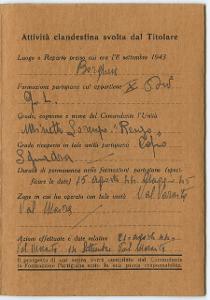 Attività clandestina svolta dal Titolare
Luogo e Reparto presso cui era l'8 settembre 1943
Borghese
Formazione partigiana cui appartiene X Div.
G. L.
Grado, cognome e nome del Comandante l'Unità
"Renzo"
Grado ricoperto in tale unità partigiana Capo
Squadra
Durata di permanenza nelle formazioni partigiane (specificare le date) 15 Agosto 44 Maggio 45
Zona in cui ha operato con tale unità Val Varaita
Val Maira
Azioni effettuate e date relative 21 Agosto
Settembre
Il prospetto di cui sopra verrà compilato dal Comandante
la Formazione Partigiana sotto la sua piena responsabilità.